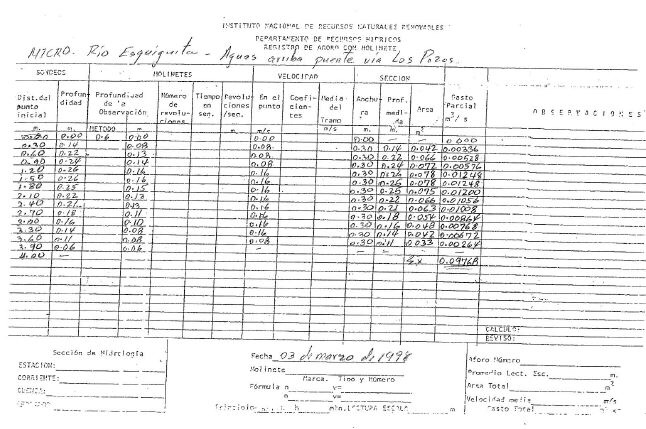 INSTITUTO NACIONAL DE RECURSOS NATURALES RENOVABLES
DEPARTAMENTO DE RECURSOS HIDRICOS
REGISTRO DE AFORO CON MOLINETE
MICRO. Río Esquiguita - Aguas arriba puente via Los Pozos.
SONDEOS MOLINETES VELOCIDAD SECCION
Dist.dal punto inicial Profundidad Profundidad de la Observación Número de revoluciones Tiempo en sen. Revoluciones /sen. En el punto Coeficientes Media del Tramo Anchura Prof. media Area Gasto Parcial m3/s OBSERVACIONES
m. m. METODO m m/s m/s m. m. m2
0.00 0.6 0.00 0.00 0.00 — — 0.000
0.30 0.14 0.08 0.08 0.30 0.14 0.042 0.00336
0.60 0.22 0.13 0.08 0.30 0.22 0.066 0.00528
0.90 0.24 0.14 0.08 0.30 0.24 0.072 0.00576
1.20 0.26 0.16 0.16 0.30 0.26 0.078 0.01248
1.50 0.26 0.16 0.16 0.30 0.26 0.078 0.01248
1.80 0.25 0.15 0.16 0.30 0.25 0.075 0.01200
2.10 0.22 0.13 0.16 0.30 0.22 0.066 0.01056
2.40 0.21 0.13 0.16 0.30 0.21 0.063 0.01008
2.70 0.18 0.11 0.16 0.30 0.18 0.054 0.00864
3.00 0.16 0.10 0.16 0.30 0.16 0.048 0.00768
3.30 0.14 0.08 0.16 0.30 0.14 0.042 0.00672
3.60 0.11 0.08 0.08 0.30 0.11 0.033 0.00264
3.90 0.06 0.06
4.00 — — 0.09768
CALCULO:
REVISO:
Sección de Hidrología
Fecha 03 de marzo de 1998
Aforo Número
ESTACION:
Molinete
Promedio Lect. Esc. m.
CORRIENTE:
Marca. Tipo y Número
Area Total m2
CUENCA:
Fórmula n v=
Velocidad media m/s
n v=
Gasto Total
Principio h LECTURA ESCALA m